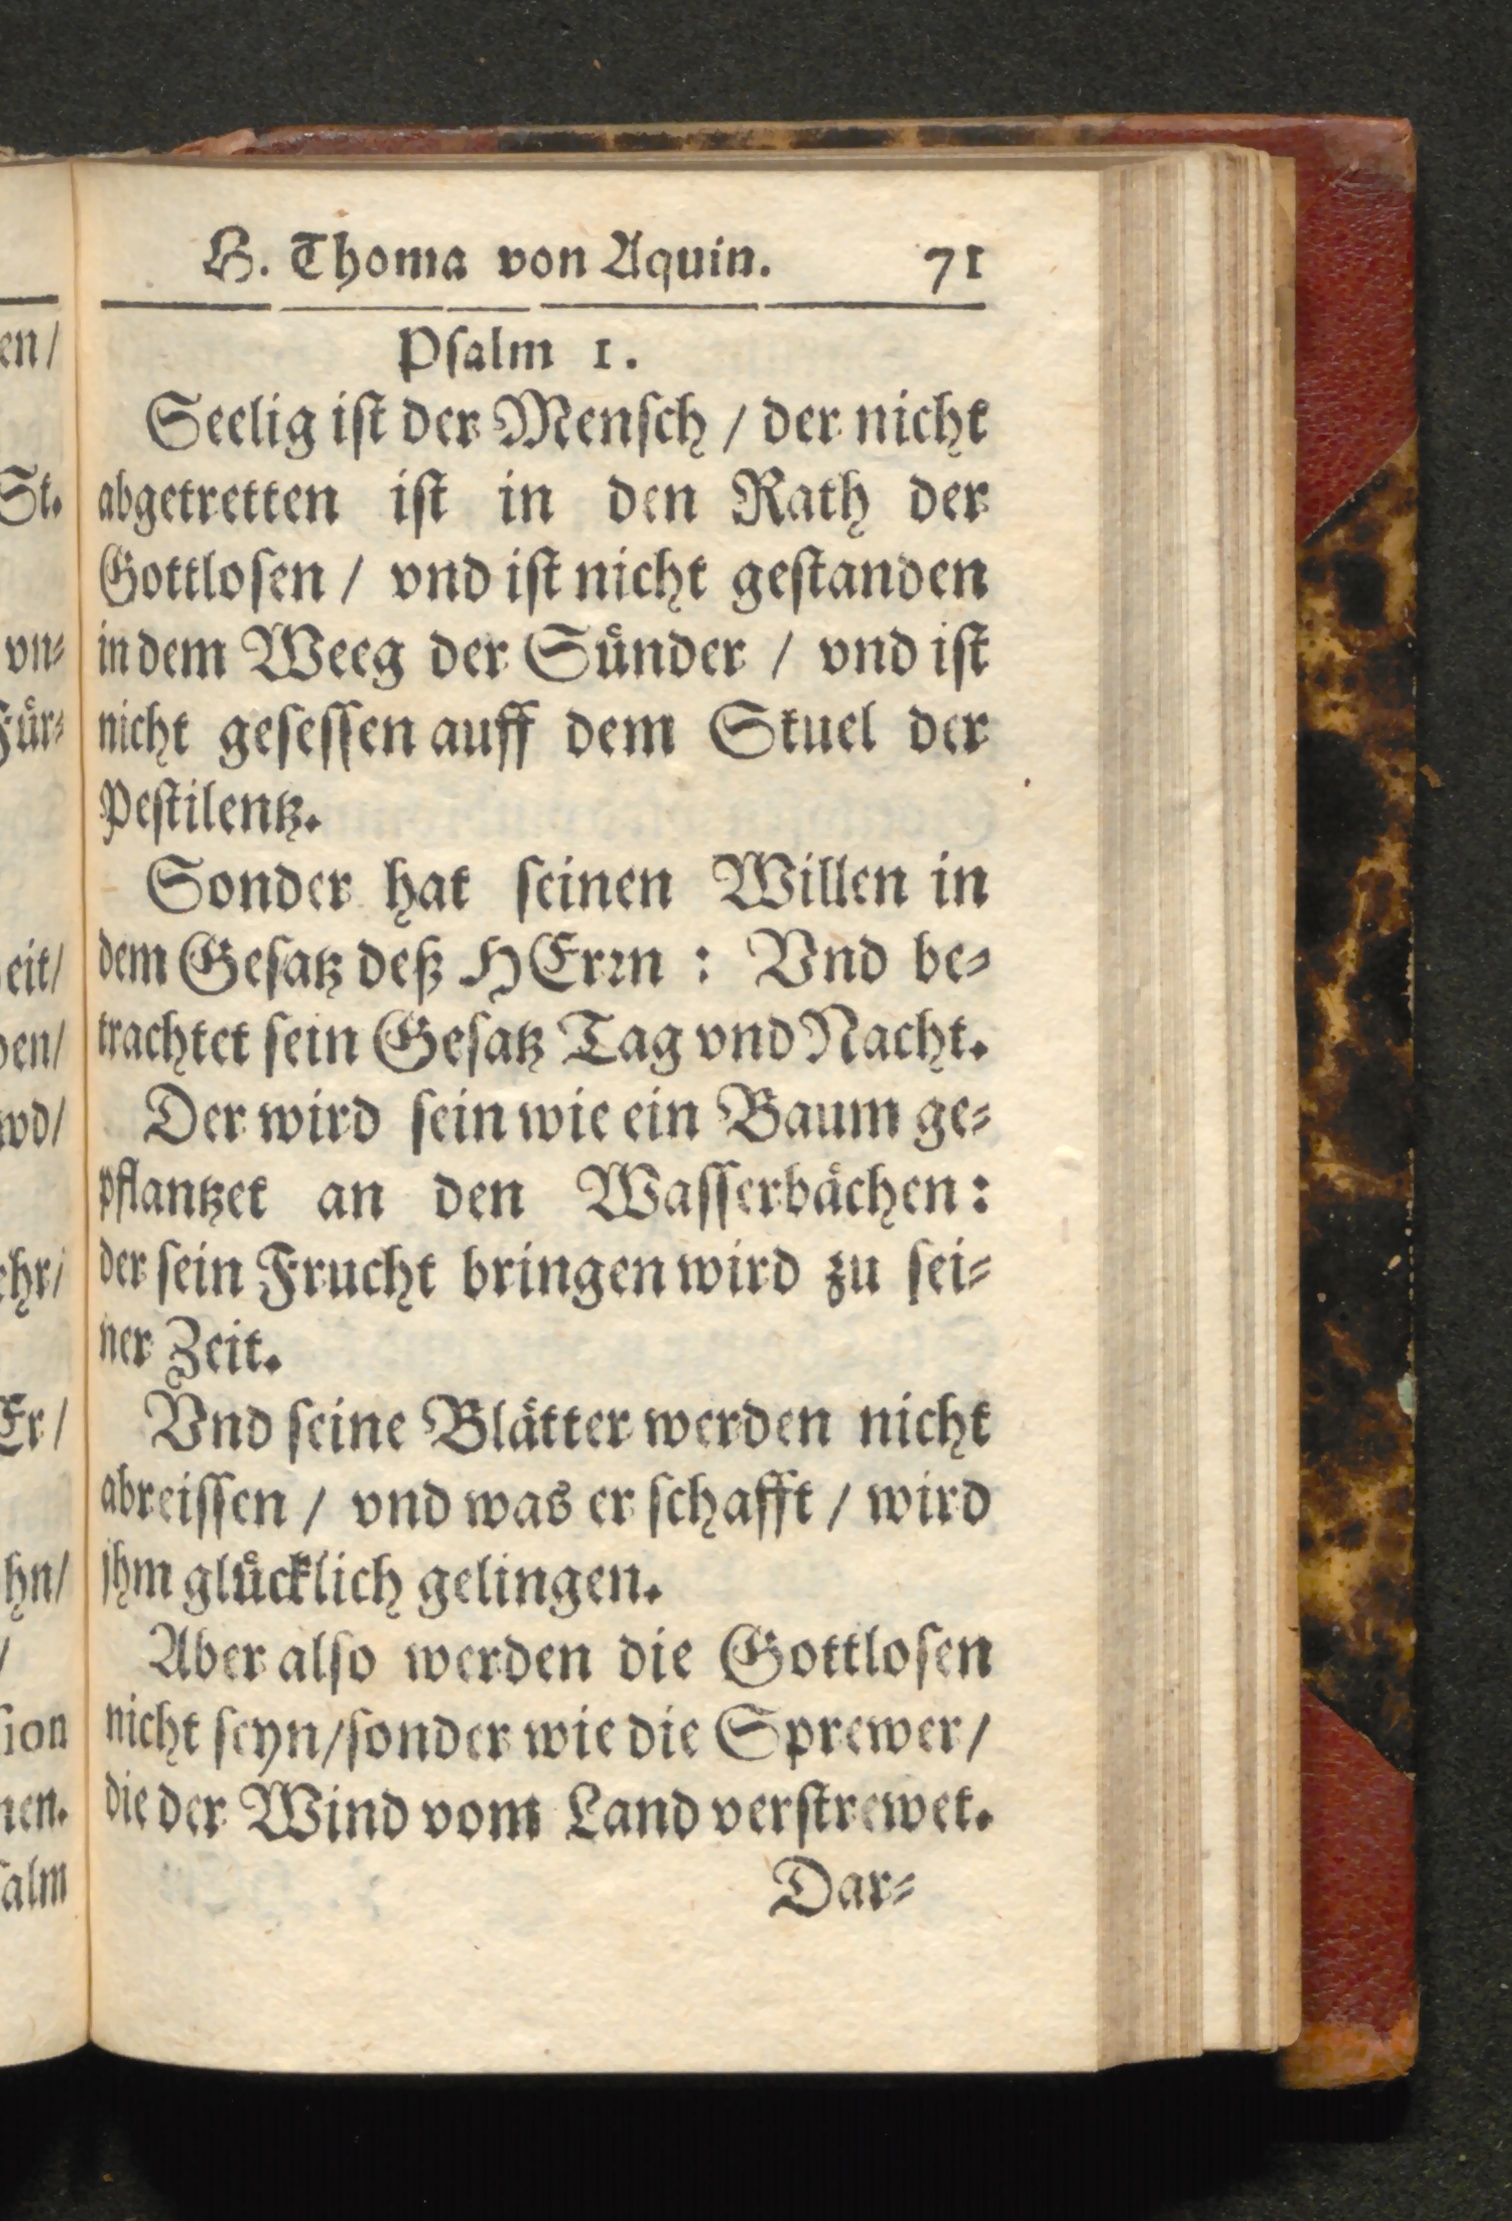 H. Thoma von Aquin. 71
Psalm 1.
Seelig iſt der Menſch / der nicht
abgetretten iſt in den Rath der
Gottloſen / vnd iſt nicht geſtanden
in dem Weeg der Sünder / vnd iſt
nicht geſeſſen auff dem Stuel der
Peſtilentz.
Sonder hat ſeinen Willen in
dem Geſatz deß HErꝛn : Vnd be⸗
trachtet ſein Geſatz Tag vnd Nacht.
Der wird ſein wie ein Baum ge⸗
pflantzet an den Waſſerbächen:
der ſein Frucht bringen wird zu ſei⸗
ner Zeit.
Vnd ſeine Blätter werden nicht
abreiſſen / vnd was er ſchafft / wird
jhm glücklich gelingen.
Aber alſo werden die Gottloſen
nicht ſeyn/ſonder wie die Sprewer/
die der Wind vom Land verſtrewet.
Dar⸗